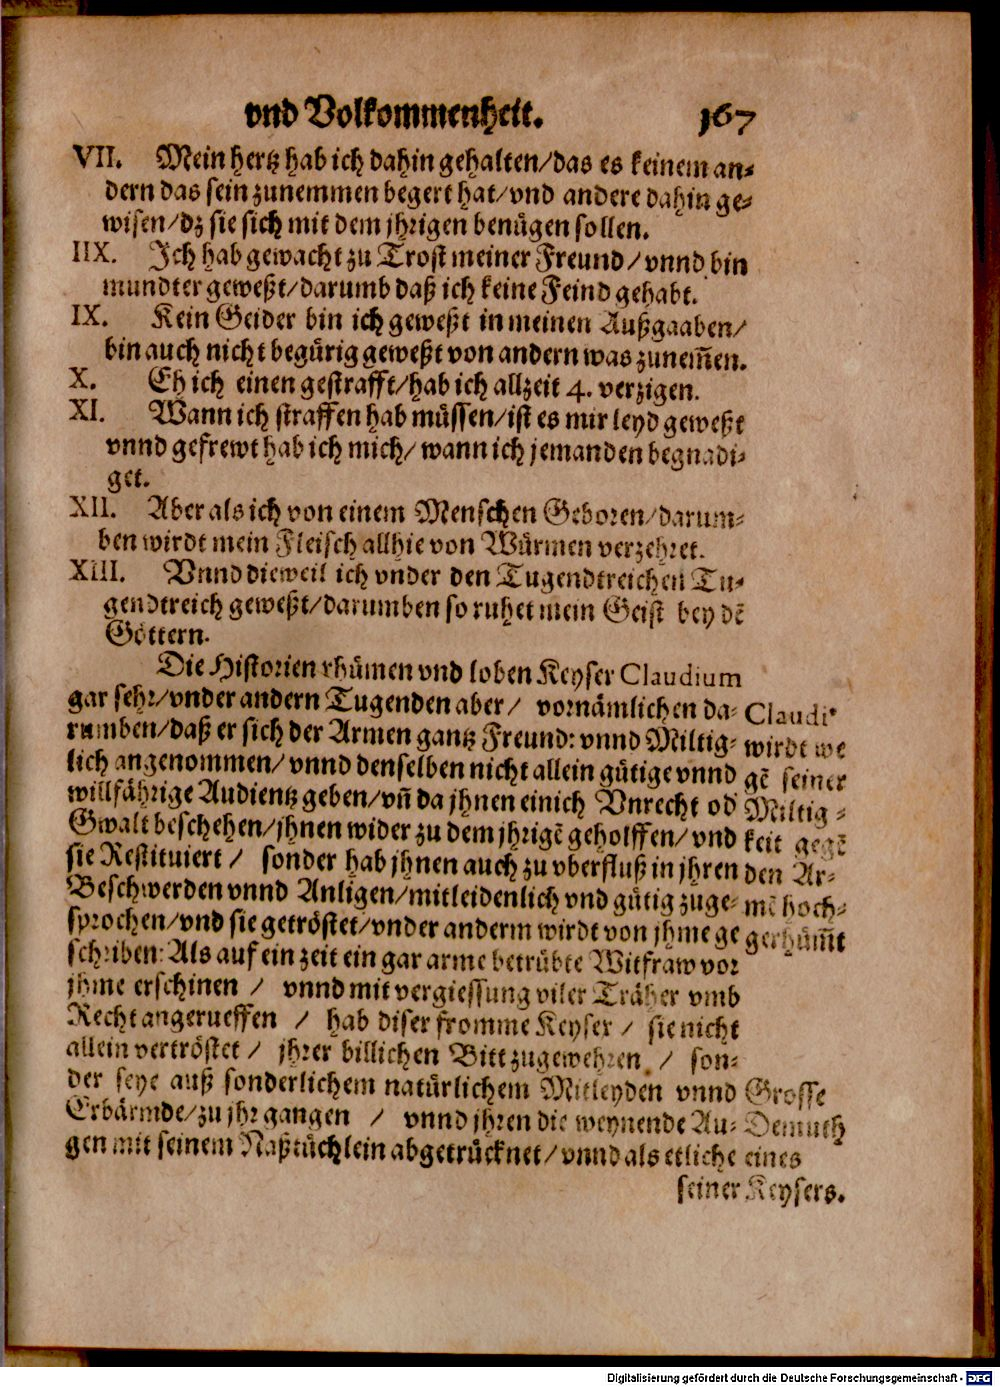 vnd Volkommenheit. 167
VII. Mein hertz hab ich dahin gehalten/das es keinem an-
dern das sein zunemmen begert hat/vnd andere dahin ge-
wisen/dz sie sich mit dem jhrigen benügen sollen.
IIX. Ich hab gewacht zu Trost meiner Freund/vnnd bin
mundter geweßt/darumb daß ich keine Feind gehabt.
IX. Kein Geider bin ich geweßt in meinen Außgaaben/
bin auch nicht begürig geweßt von andern was zunem̃en.
X. Eh ich einen gestrafft/hab ich allzeit 4. verzigen.
XI. Wann ich straffen hab müssen/ist es mir leyd geweßt
vnnd gefrewt hab ich mich/wann ich jemanden begnadi-
get.
XII. Aber als ich von einem Menschen Geboren/darum-
ben wirdt mein Fleisch allhie von Würmen verzehret.
XIII. Vnnd dieweil ich vnder den Tugendtreichen Tu-
gendtreich geweßt/darumben so ruhet mein Geist bey dẽ
Göttern.
Die Historien rhümen vnd loben Keyser Claudium
gar sehr/vnder andern Tugenden aber/ vornämlichen da-
rumben/daß er sich der Armen gantz Freund: vnnd Miltig-
lich angenommen/vnnd denselben nicht allein gütige vnnd
willfährige Audientz geben/vñ da jhnen einich Vnrecht od'
Gwalt beschehen/jhnen wider zu dem jhrigẽ geholffen/vnd
sie Restituiert/ sonder hab jhnen auch zu vberfluß in jhren
Beschwerden vnnd Anligen/mitleidenlich vnd gütig zuge-
sprochen/vnd sie getröstet/vnder anderm wirdt von jhme ge
schriben: Als auf ein zeit ein gar arme betrübte Witfraw vor
jhme erschinen / vnnd mit vergiessung viler Träher vmb
Recht angerueffen / hab diser fromme Keyser / sie nicht
allein vertröstet / jhrer billichen Bitt zugewehren / son-
der seye auß sonderlichem natürlichem Mitleyden vnnd
Erbärmde/zu jhr gangen / vnnd jhren die weynende Au-
gen mit seinem Naßtüchlein abgetrücknet/vnnd als etliche
seiner
Claudi'
wirdt we
gẽ seiner
Miltig-
keit gegẽ
den Ar-
mẽ hoch-
gerhüm̃t
Grosse
Demuth
eines
Keysers.
Digitalisierung gefördert durch die Deutsche Forschungsgemeinschaft - DFG